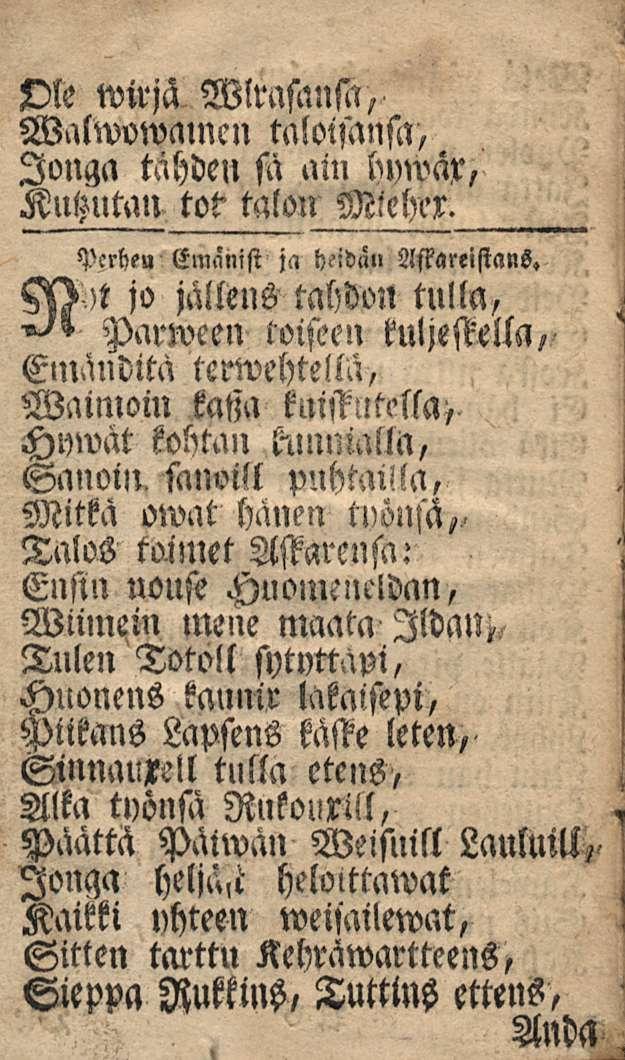 Ole wirjä Wirasansa,
Walwowainen taloisansa,
Jonga tähden sä ain hywäx,
Kutzutan tot talon Miehex.
Perhen Emänist ja heidän Askareistans.
Nyt jo jällens tahdon tulla,
Parween toiseen kuljeskella,
Emänditä terwehtellä,
Waimoin kaßa kuiskutella,
Hywät kohtan kunnialla,
Sanoin sanoill puhtailla,
Mitkä owat hänen työnsä,
Talos toimet Askarensa:
Ensin nouse Huomeneldan,
Wiimein mene maata Ildan,
Tulen Totoll sytyttäpi,
Huonens kaunix lakaisepi,
Piikans Lapsens käske leten,
Siunauxell tulla etens,
Alka työnsä Rukouxill,
Päättä Päiwän Weisuill Lauluill,
Jonga heljäst heloittawat
Kaikki yhteen weisailewat,
Sitten tarttu Kehräwartteens,
Sieppa Rukkins, Tuttins ettens,
Anda